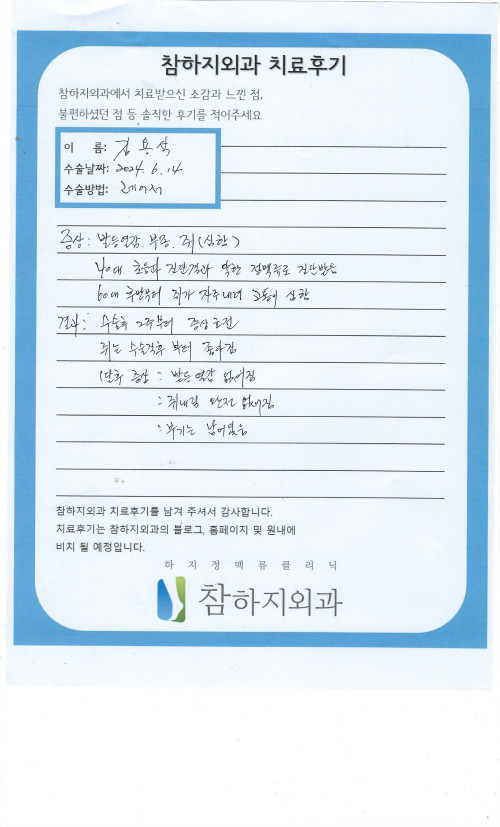 참하지외과 치료후기
참하지외과에서 치료받으신 소감과 느낀 점,
불편하셨던 점 등 솔직한 후기를 적어주세요
이 름: 김용석
수술날짜: 2024. 6. 14
수술방법: 레이저
증상: 발등열감. 부종. 쥐(심함)
40대 초음파 진단결과 약한 정맥류로 진단받음
60대 후반부터 쥐가 자주내려 고통이 심함
결과: 수술후 2주부터 증상호전
쥐는 수술직후 부터 좋아짐
1달후 증상: 발등열감 없어짐
: 쥐내림 완전 없어짐
: 부기는 남아있음
참하지외과 치료후기를 남겨 주셔서 감사합니다.
치료후기는 참하지외과의 블로그, 홈페이지 및 원내에
비치 될 예정입니다.
하지정맥류클리닉
참하지외과